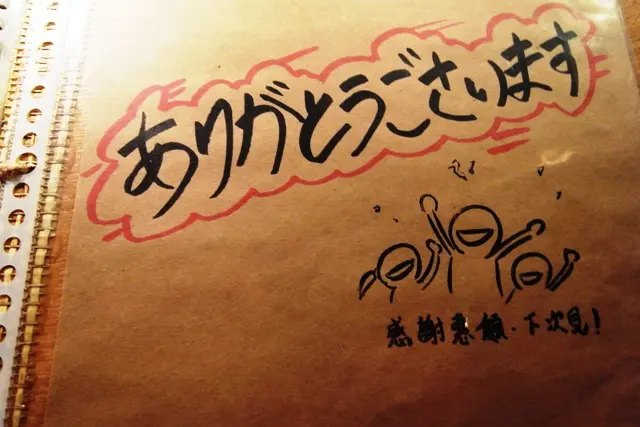 ありがとうございます
感謝惠顧·下次見!